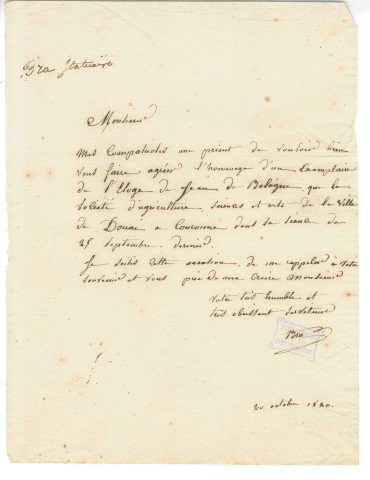 Bra Statuaire
Monsieur
Mes Compatriotes me prient de vouloir bien
vous faire agréer l'hommage d'un Exemplaire
de l'Eloge de Jean de Bologne, que la
Société d'agriculture, sciences et arts de la Ville
de Douai a Couronné dans sa séance du
25 septembre dernier.
Je saisis cette occasion de me rappeler à votre
souvenir et vous prie de me croire Monsieur
votre très humble et
très obéissant serviteur
Bra
20 octobre 1820.